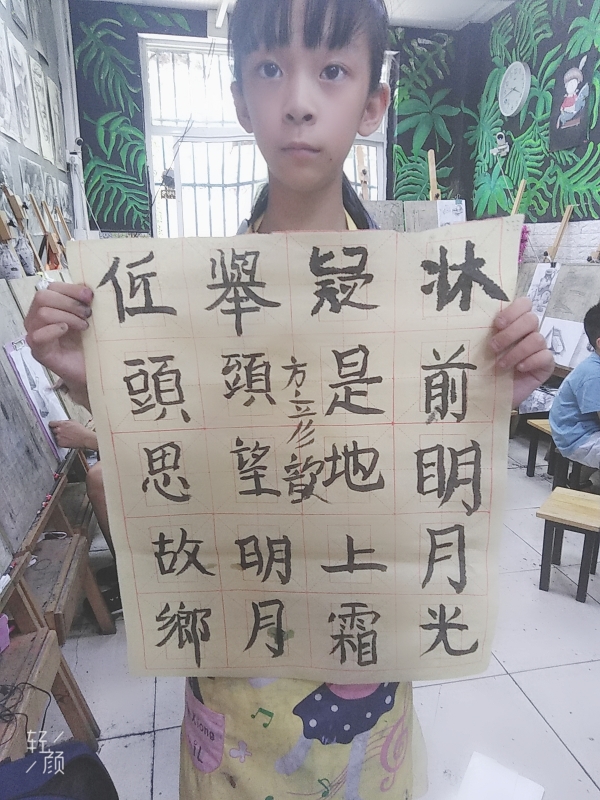 牀前明月光
疑是地上霜
舉頭望明月
低頭思故鄉
方彦歆
Xiong
轻
颜